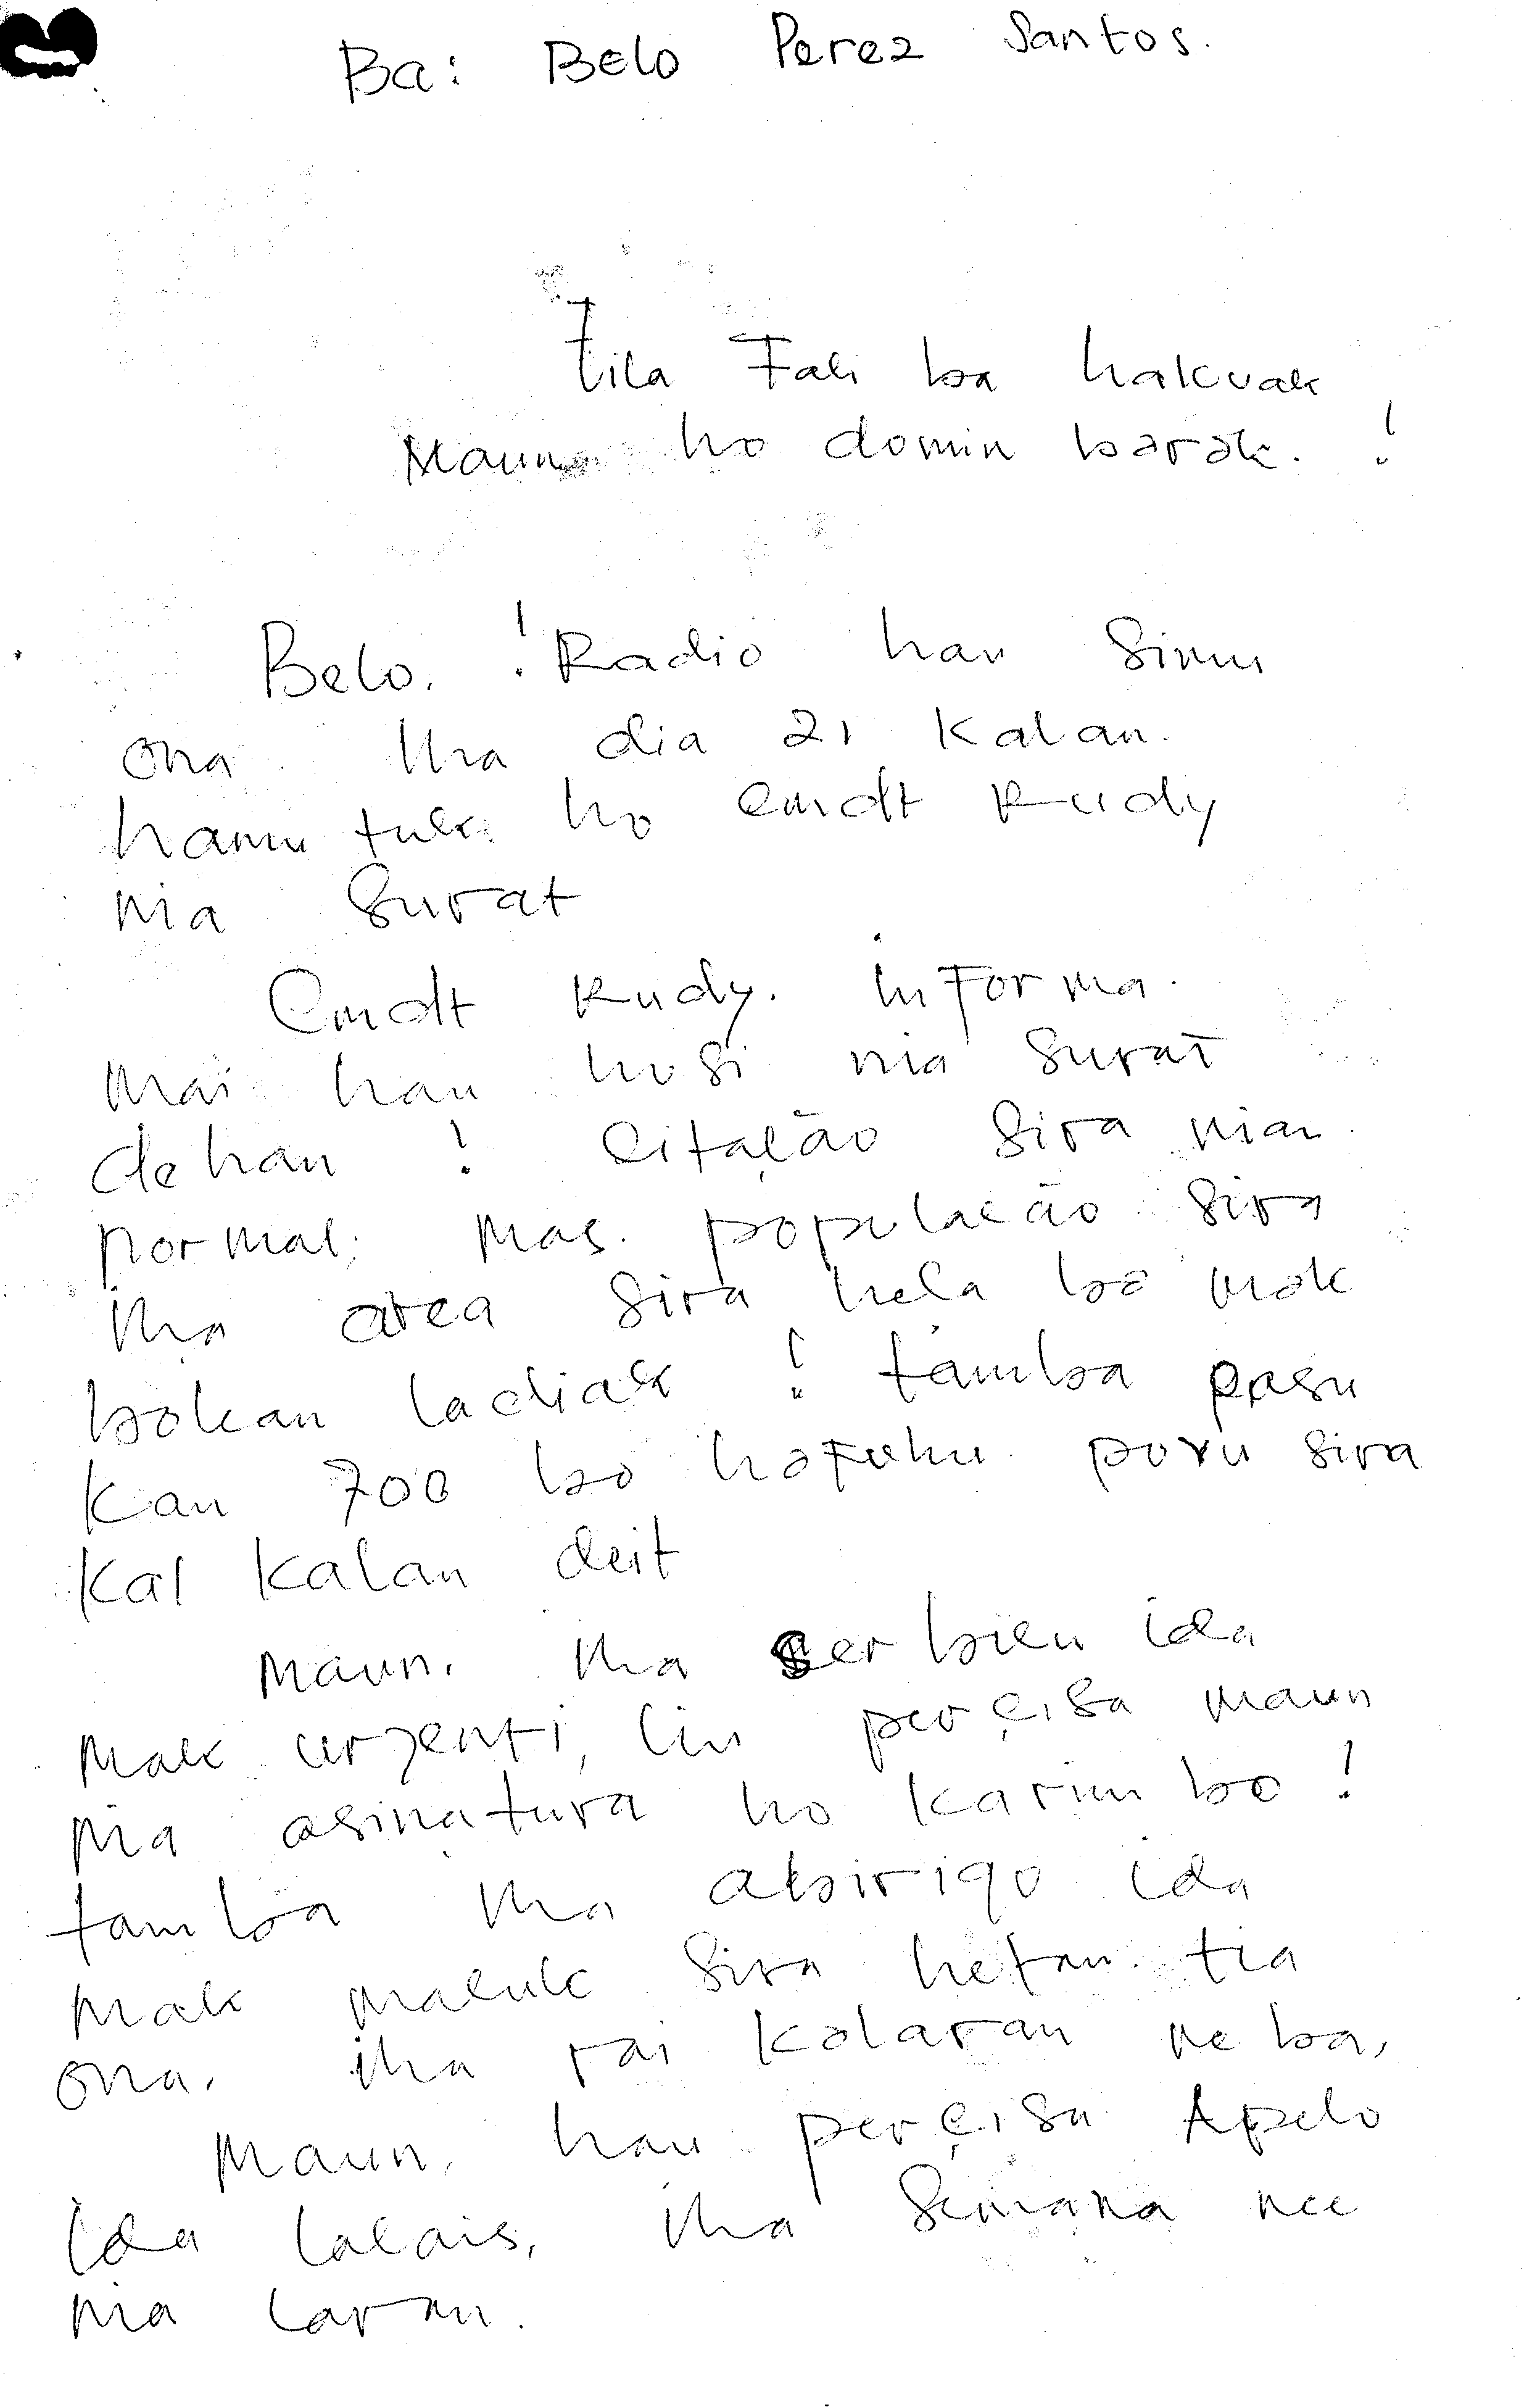 Ba: Belo Perez Santos.
Tila Fali ba hakuak
Maun ho domin barak. !
Belo. ! Radio hau simu
ona iha dia 21 kalan.
hamutuk ho Cmdt Rudy
nia surat
Cmdt Rudy. informa.
mai hau husi nia surat
dehan ! Citação sira nian.
normal, mas. população sira
iha area sira hela ba mak
bokan ladiak ! tamba pasu
kan 700 ba hafuhu povu sira
kal kalan deit
Maun. iha serbisu ida
mak urzenti, liu perçisa maun
nia asinatura ho karimbo !
tamba iha abirigo ida
mak maluk sira hetan tia
ona. iha rai kolaran neba,
Maun, hau perçisa Apelo
ida lalais, iha semana nee
nia laran.